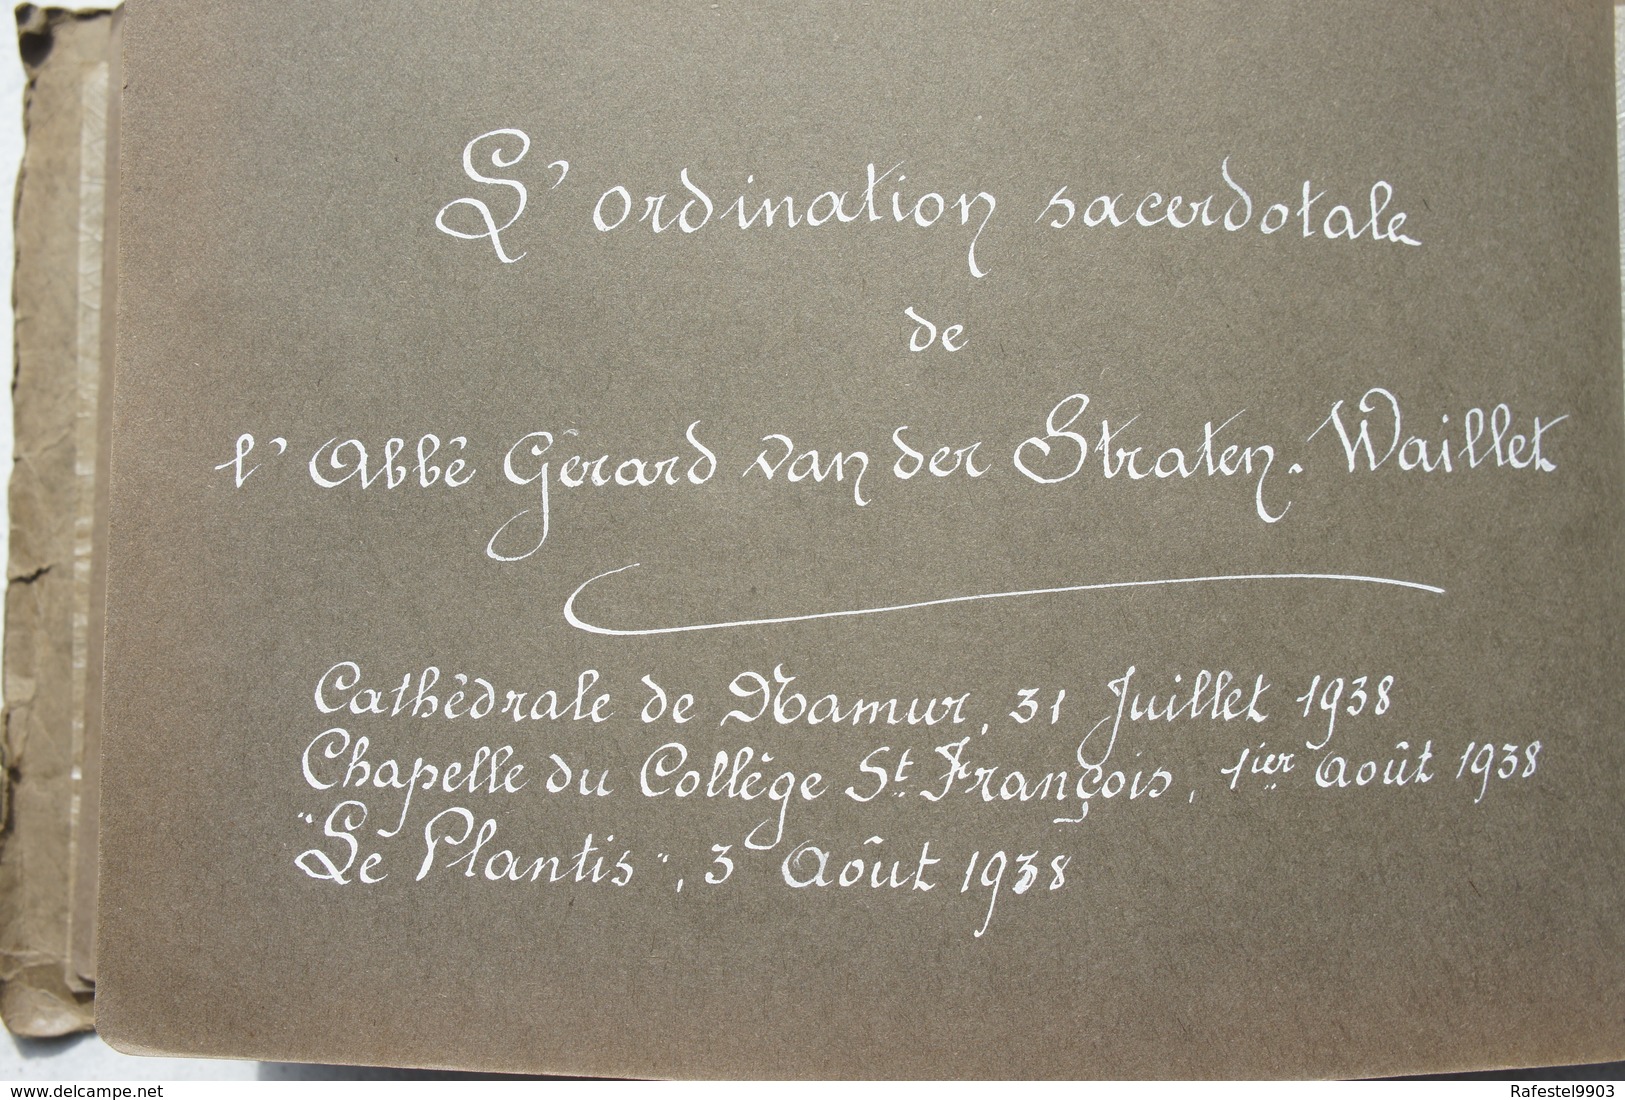 L'ordination sacerdotale
de
l'Abbé Gérard van der Straten-Waillet
Cathédrale de Namur, 31 Juillet 1938
Chapelle du Collège St. François, 1ier Août 1938
"Le Plantis", 3 Août 1938
www.delcampe.net
Rafestel9903